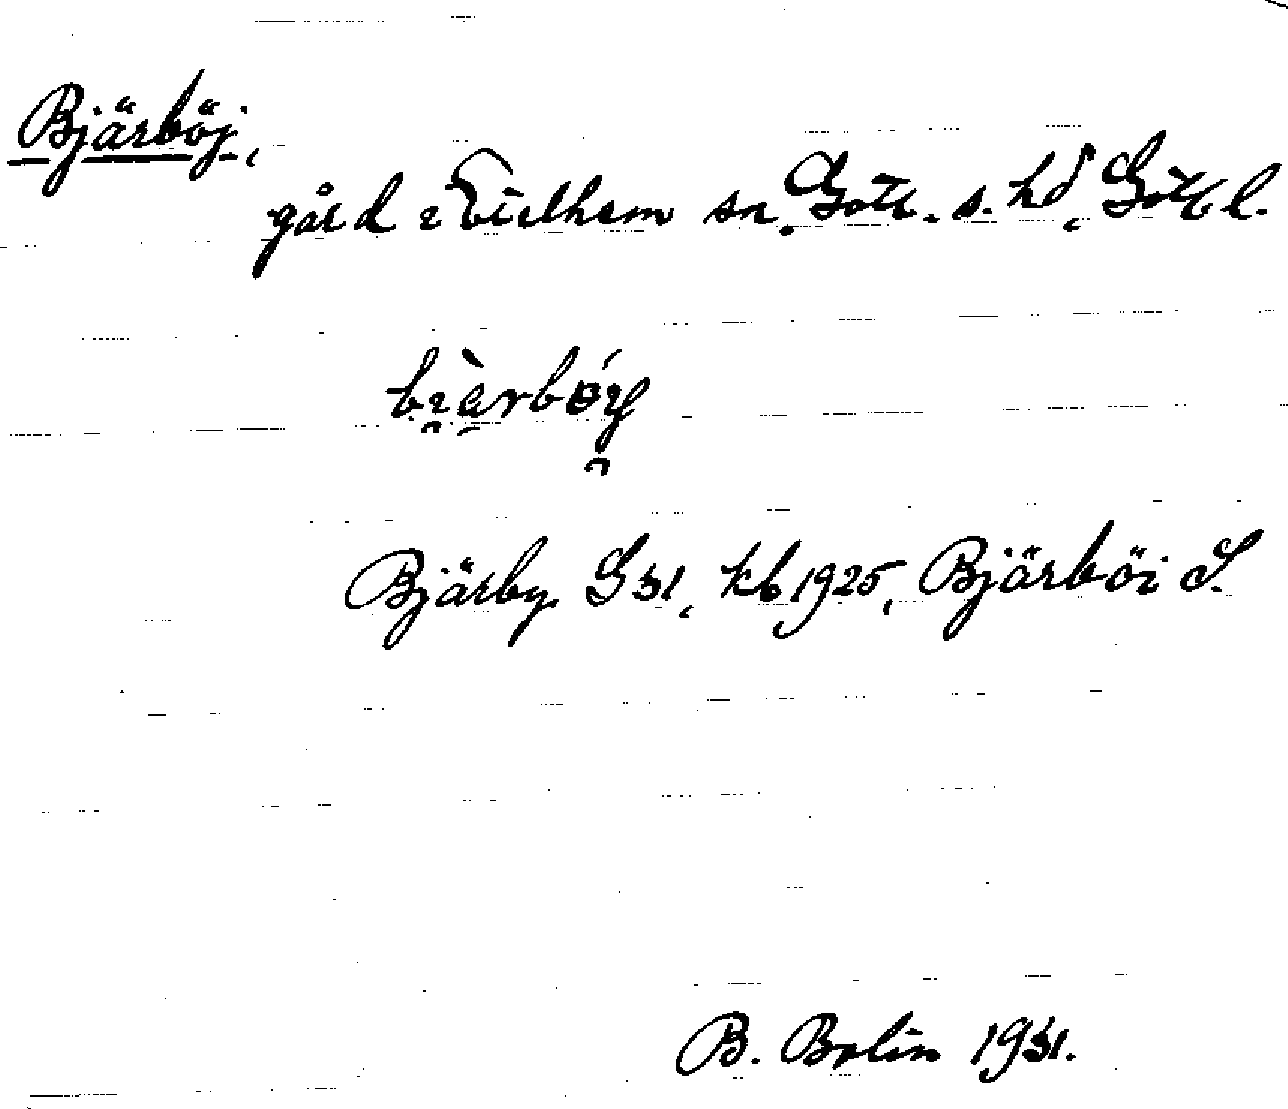 Bjärböj,
gård i Etelhem sn. Gotl. s. hd, Gotl. l.
Bjärby G 31, kb 1925, Bjärböi S.
B. Bolin 1931.